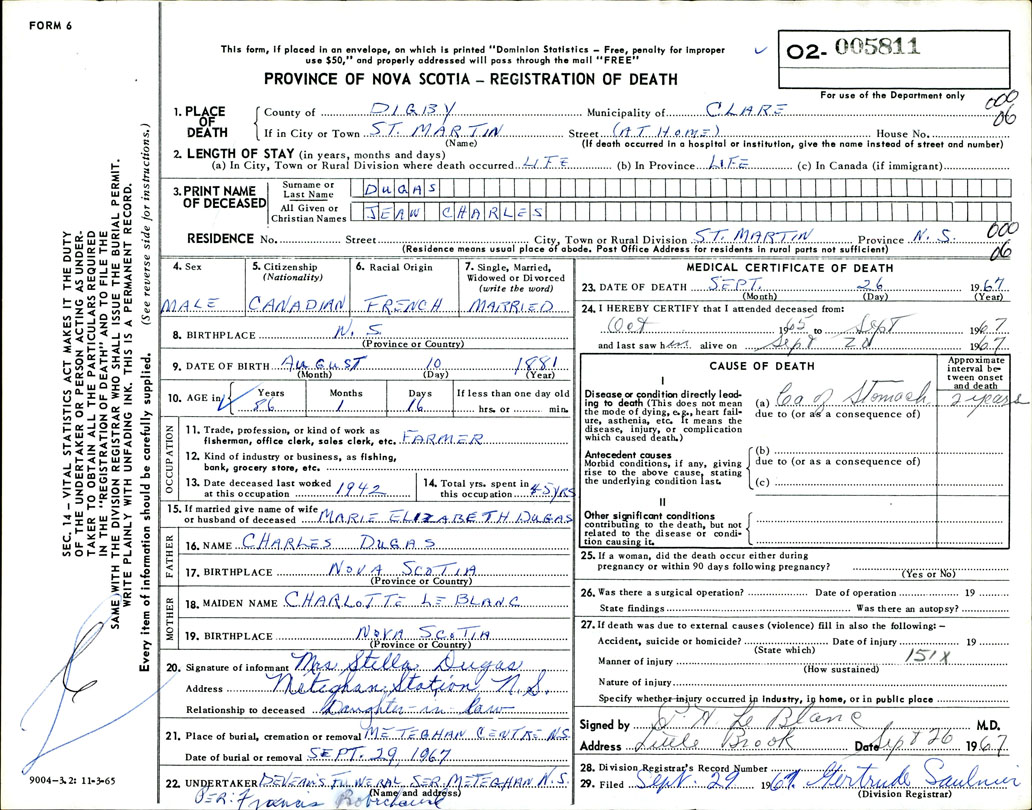 FORM 6
This form, if placed in an envelope, on which is printed "Dominion Statistics – Free, penalty for improper
use $50," and properly addressed will pass through the mail "FREE"
02- 005811
For use of the Department only
PROVINCE OF NOVA SCOTIA – REGISTRATION OF DEATH
SEC. 14 – VITAL STATISTICS ACT MAKES IT THE DUTY
OF THE UNDERTAKER OR PERSON ACTING AS UNDER-
TAKER TO OBTAIN ALL THE PARTICULARS REQUIRED
IN THE "REGISTRATION OF DEATH" AND TO FILE THE
SAME WITH THE DIVISION REGISTRAR WHO SHALL ISSUE THE BURIAL PERMIT.
WRITE PLAINLY WITH UNFADING INK. THIS IS A PERMANENT RECORD.
Every item of information should be carefully supplied. (See reverse side for instructions.)
1. PLACE OF DEATH
County of DIGBY Municipality of CLARE 000 06
If in City or Town ST. MARTIN Street (AT HOME) House No.
(Name) (If death occurred in a hospital or institution, give the name instead of street and number)
2. LENGTH OF STAY (in years, months and days)
(a) In City, Town or Rural Division where death occurred LIFE (b) In Province LIFE (c) In Canada (if immigrant)
3. PRINT NAME OF DECEASED
Surname or Last Name DUGAS
All Given or Christian Names JEAN CHARLES
RESIDENCE No. Street City, Town or Rural Division ST. MARTIN Province N.S. 000 06
(Residence means usual place of abode. Post Office Address for residents in rural parts not sufficient)
4. Sex 5. Citizenship (Nationality) 6. Racial Origin 7. Single, Married, Widowed or Divorced (write the word)
MALE CANADIAN FRENCH MARRIED
8. BIRTHPLACE N. S.
(Province or Country)
9. DATE OF BIRTH AUGUST 10 1881
(Month) (Day) (Year)
10. AGE in Years Months Days If less than one day old
86 1 16 hrs. or min.
OCCUPATION
11. Trade, profession, or kind of work as
fisherman, office clerk, sales clerk, etc. FARMER
12. Kind of industry or business, as fishing,
bank, grocery store, etc.
13. Date deceased last worked
at this occupation 1942
14. Total yrs. spent in
this occupation 45 YRS
15. If married give name of wife
or husband of deceased MARIE ELIZABETH DUGAS
FATHER
16. NAME CHARLES DUGAS
17. BIRTHPLACE NOVA SCOTIA
(Province or Country)
MOTHER
18. MAIDEN NAME CHARLOTTE LE BLANC
19. BIRTHPLACE NOVA SCOTIA
(Province or Country)
20. Signature of informant Mrs Stella Dugas
Address Meteghan Station N.S.
Relationship to deceased Daughter-in law
21. Place of burial, cremation or removal METEGHAN CENTRE N.S.
Date of burial or removal SEPT. 29, 1967
22. UNDERTAKER DEVEAU'S FUNERAL SER. METEGHAN N.S.
(Name and address)
PER: Francis Robichaud
9004-3.2: 11-3-65
MEDICAL CERTIFICATE OF DEATH
23. DATE OF DEATH SEPT. 26 1967
(Month) (Day) (Year)
24. I HEREBY CERTIFY that I attended deceased from:
Oct 1965 to Sept 1967
and last saw him alive on Sept 20 1967
CAUSE OF DEATH
Approximate interval between onset and death
I
Disease or condition directly lead-
ing to death (This does not mean
the mode of dying, e.g., heart fail-
ure, asthenia, etc. It means the
disease, injury, or complication
which caused death.)
(a) Ca of Stomach 2 years
due to (or as a consequence of)
Antecedent causes
Morbid conditions, if any, giving
rise to the above cause, stating
the underlying condition last.
(b)
due to (or as a consequence of)
(c)
II
Other significant conditions
contributing to the death, but not
related to the disease or condi-
tion causing it.
25. If a woman, did the death occur either during
pregnancy or within 90 days following pregnancy?
(Yes or No)
26. Was there a surgical operation? Date of operation 19
State findings Was there an autopsy?
27. If death was due to external causes (violence) fill in also the following: –
Accident, suicide or homicide? Date of injury 19
(State which)
Manner of injury 151X
(How sustained)
Nature of injury
Specify whether injury occurred in industry, in home, or in public place
Signed by Le Blanc M.D.
Address Little Brook Date Sept 26 1967
28. Division Registrar's Record Number
29. Filed Sept. 29 1967 Gertrude Saulnier
(Division Registrar)